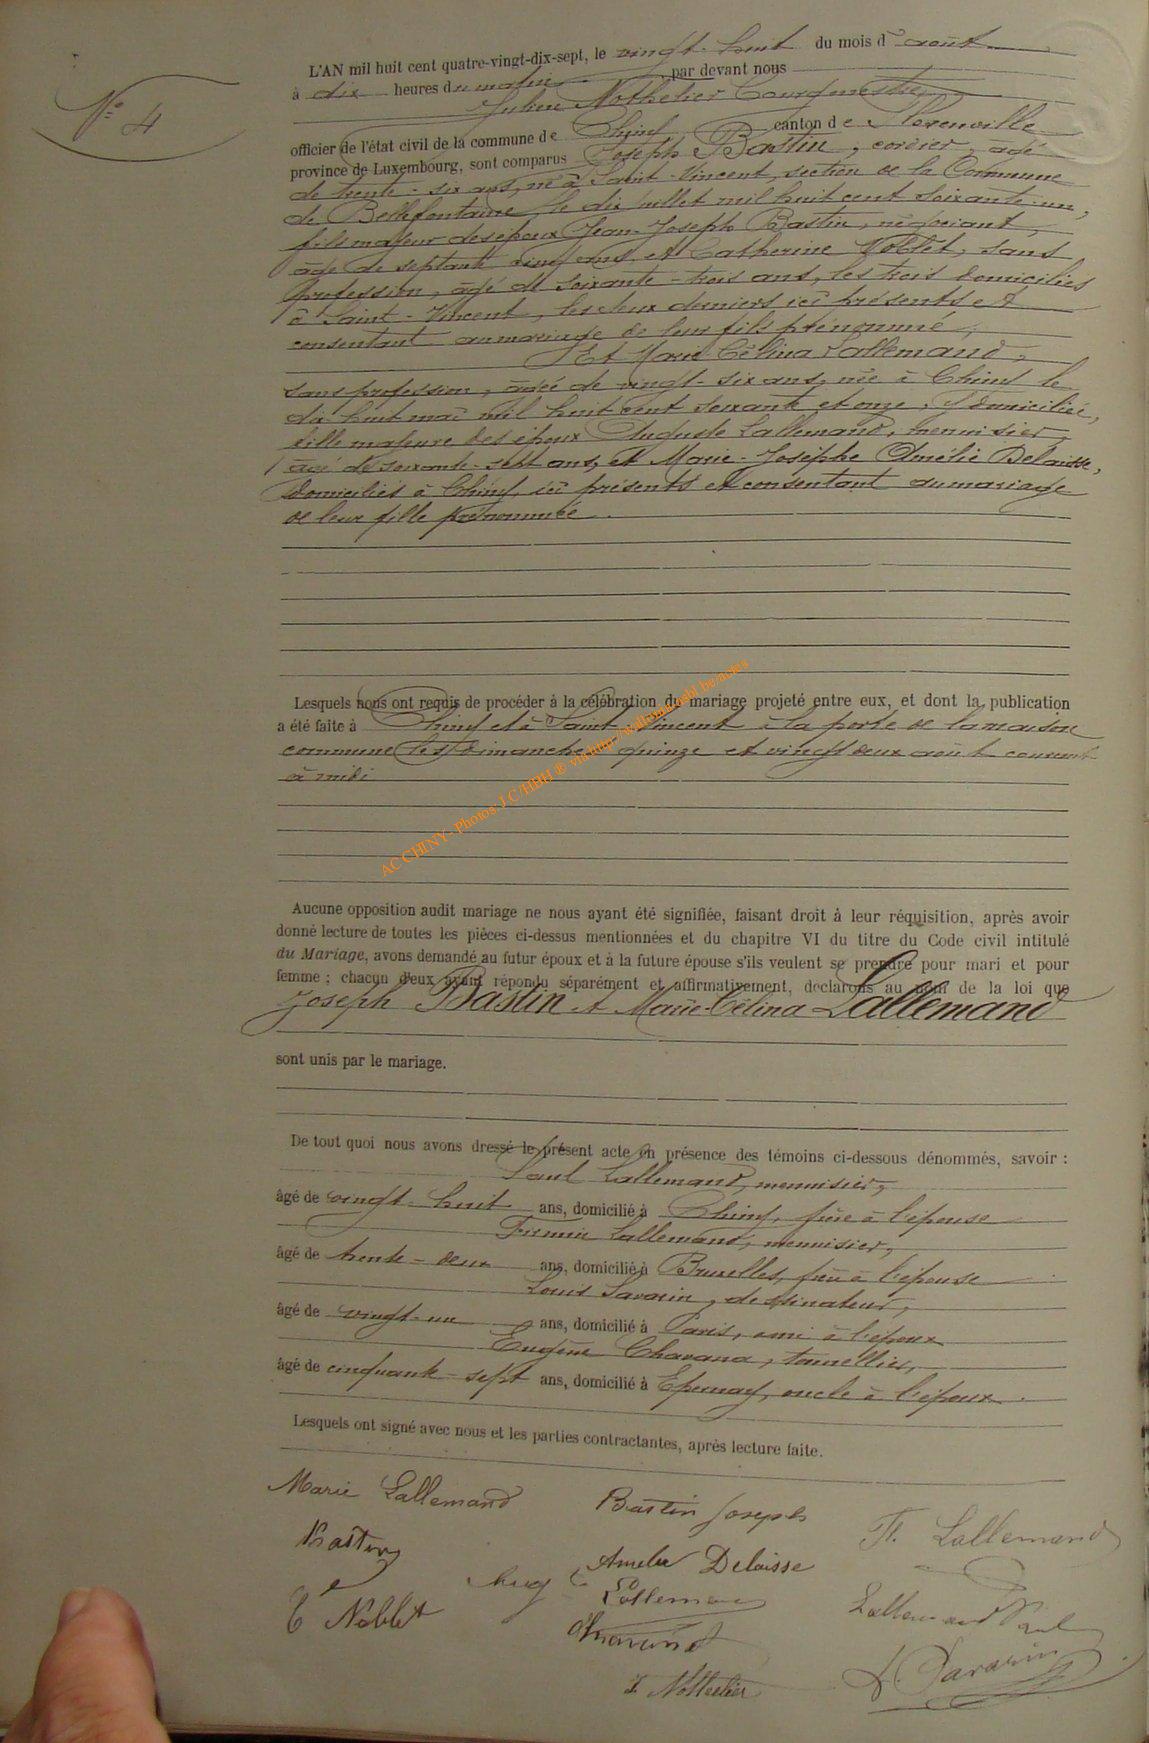 N° 4
L'AN mil huit cent quatre-vingt-dix-sept, le vingt-huit du mois d'août
à dix heures du matin par devant nous
Julien Nothelier Bourgmestre,
officier de l'état civil de la commune de Chiny canton de Florenville
province de Luxembourg, sont comparus Joseph Bastin, cordier, âgé
de trente-six ans, né à Saint-Vincent, section de la Commune
de Bellefontaine, le dix juillet mil huit cent soixante-un,
fils majeur des époux Jean-Joseph Bastin, négociant,
âgé de septante cinq ans et Catherine Noblet, sans
profession, âgé de soixante-trois ans, les trois domiciliés
à Saint-Vincent, les deux derniers ici présents et
consentant au mariage de leur fils prénommé;
Et Marie-Célina Lallemand,
sans profession, âgée de vingt-six ans, née à Chiny le
dix-huit mai mil huit cent soixante et onze, y domiciliée,
fille majeure des époux Auguste Lallemand, menuisier,
âgé de soixante-sept ans, et Marie-Josèphe Amélie Delaisse,
domiciliés à Chiny, ici présents et consentant au mariage
de leur fille prénommée.
Lesquels nous ont requis de procéder à la célébration du mariage projeté entre eux, et dont la publication
a été faite à Chiny et à Saint-Vincent à la porte de la maison
commune les dimanches quinze et vingt deux août courant
à midi
AC CHINY- Photos: J C/HBH ® via http://wallonia.asbl.be/actes
Aucune opposition audit mariage ne nous ayant été signifiée, faisant droit à leur réquisition, après avoir
donné lecture de toutes les pièces ci-dessus mentionnées et du chapitre VI du titre du Code civil intitulé
du Mariage, avons demandé au futur époux et à la future épouse s'ils veulent se prendre pour mari et pour
femme ; chacun d'eux ayant répondu séparément et affirmativement, déclarons au nom de la loi que
Joseph Bastin et Marie-Célina Lallemand
sont unis par le mariage.
De tout quoi nous avons dressé le présent acte en présence des témoins ci-dessous dénommés, savoir :
Paul Lallemand, menuisier,
âgé de vingt-huit ans, domicilié à Chiny, frère à l'épouse
Firmin Lallemand, menuisier,
âgé de trente-deux ans, domicilié à Bruxelles, frère à l'épouse
Louis Savarin, dessinateur,
âgé de vingt-un ans, domicilié à Paris, ami à l'époux
Eugène Chavana, tonnellier,
âgé de cinquante-sept ans, domicilié à Epernay, oncle à l'époux.
Lesquels ont signé avec nous et les parties contractantes, après lecture faite.
Marie Lallemand
Bastin Joseph
F. Lallemand
Bastin
Amelie Delaisse
Aug
Lallemand
Lallemand Paul
Cne Noblet
L. Savarin
J. Nothelier